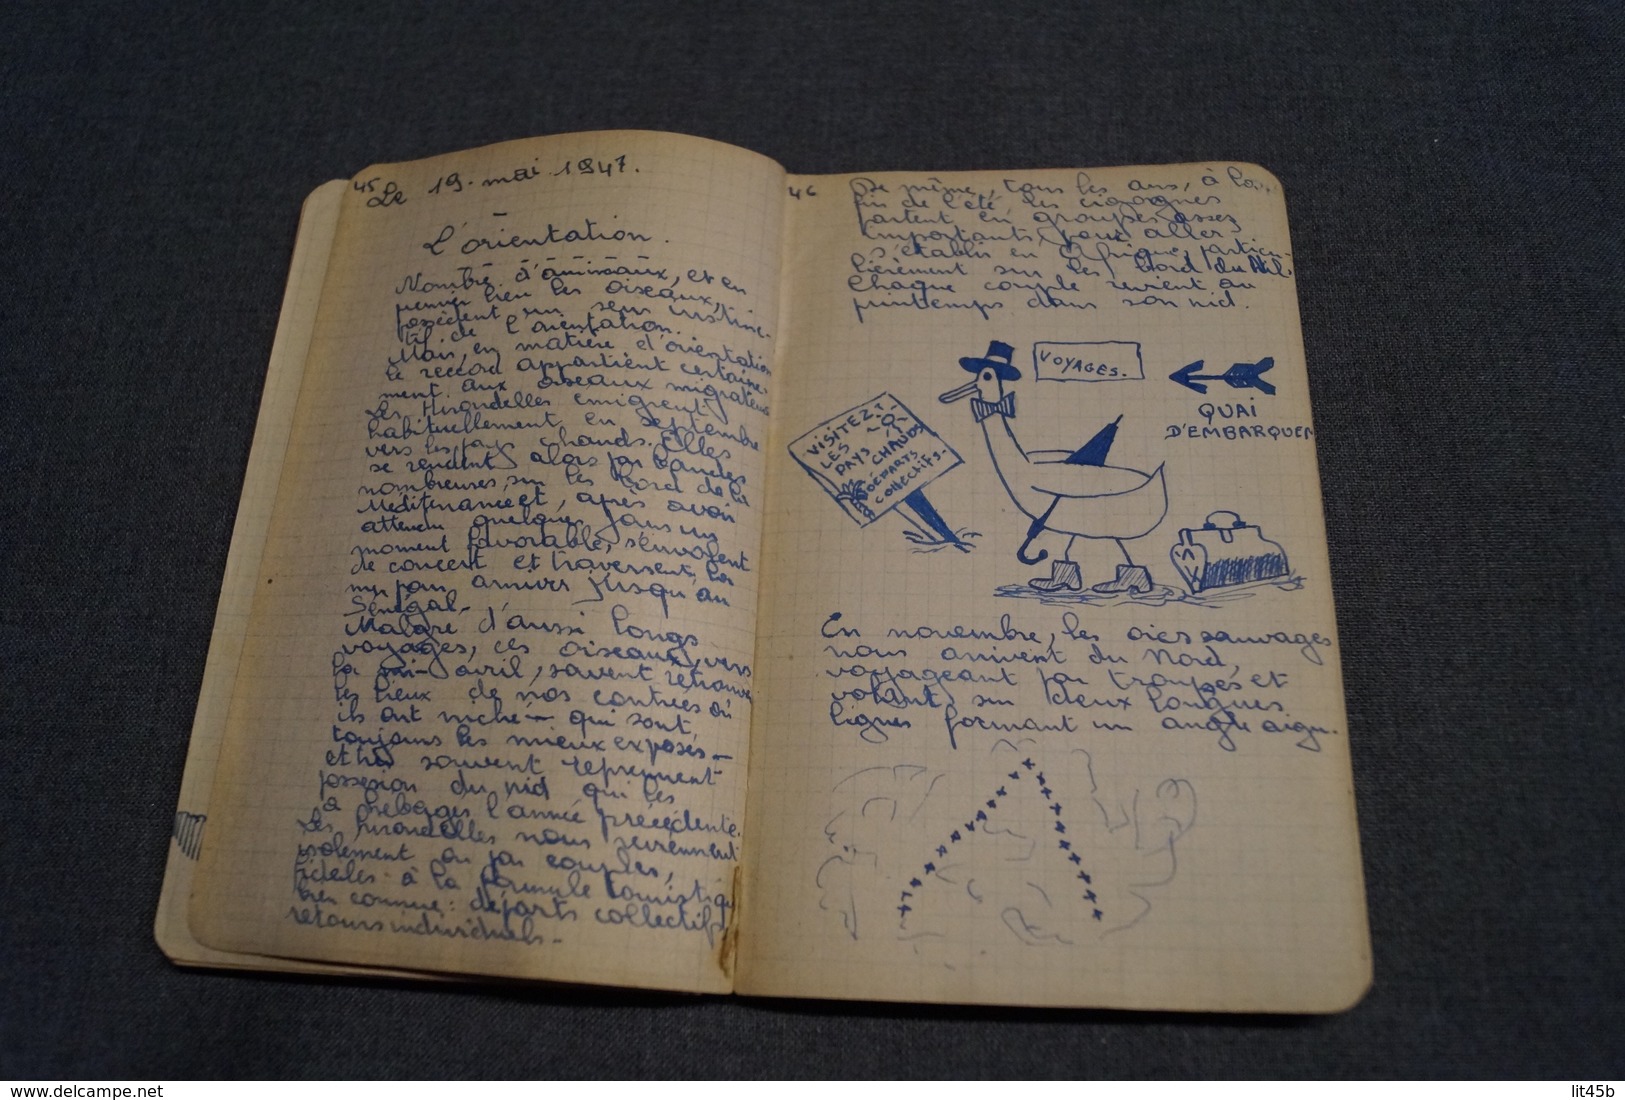 45
Le 19. mai 1947.
L'orientation.
Nombre d'animaux, et en
premier lieu les oiseaux,
possèdent un sens instinc-
tif de l'orientation.
Mais, en matière d'orientation
le record appartient certaine-
ment aux oiseaux migrateurs
Les Hirondelles émigrent
habituellement en septembre
vers les pays chauds. Elles
se rendent alors par bandes
nombreuses, sur les bord de la
Méditerannée et, après avoir
attendu quelques jours un
moment favorable, s'envolent
de concert et traversent la
mer pour arriver jusqu'au
Sénégal.
Malgré d'aussi longs
voyages, ces oiseaux, vers
la mi-avril, savent retrouver
les lieux de nos contrées où
ils ont niché — qui sont
toujours les mieux exposés —
et souvent reprennent
possession du nid qui les
a hébergés l'année précédente.
Les hirondelles nous reviennent
isolément ou par couples,
fidèles à la formule touristique
bien connue: départs collectifs
retours individuels.
46
De même, tous les ans, à la
fin de l'été les cigognes
partent en groupes assez
importants, pour aller
s'établir en Afrique, particu-
lièrement sur les bord du Nil.
Chaque couple revient au
printemps dans son nid.
VOYAGES.
VISITEZ
LES
PAYS CHAUDS
DÉPARTS
COLLECTIFS.
QUAI
D'EMBARQUEM
En novembre, les oies sauvages
nous arrivent du Nord,
voyageant par troupes et
volant sur deux longues
lignes formant un angle aigu.
delcampe.net
lit45b